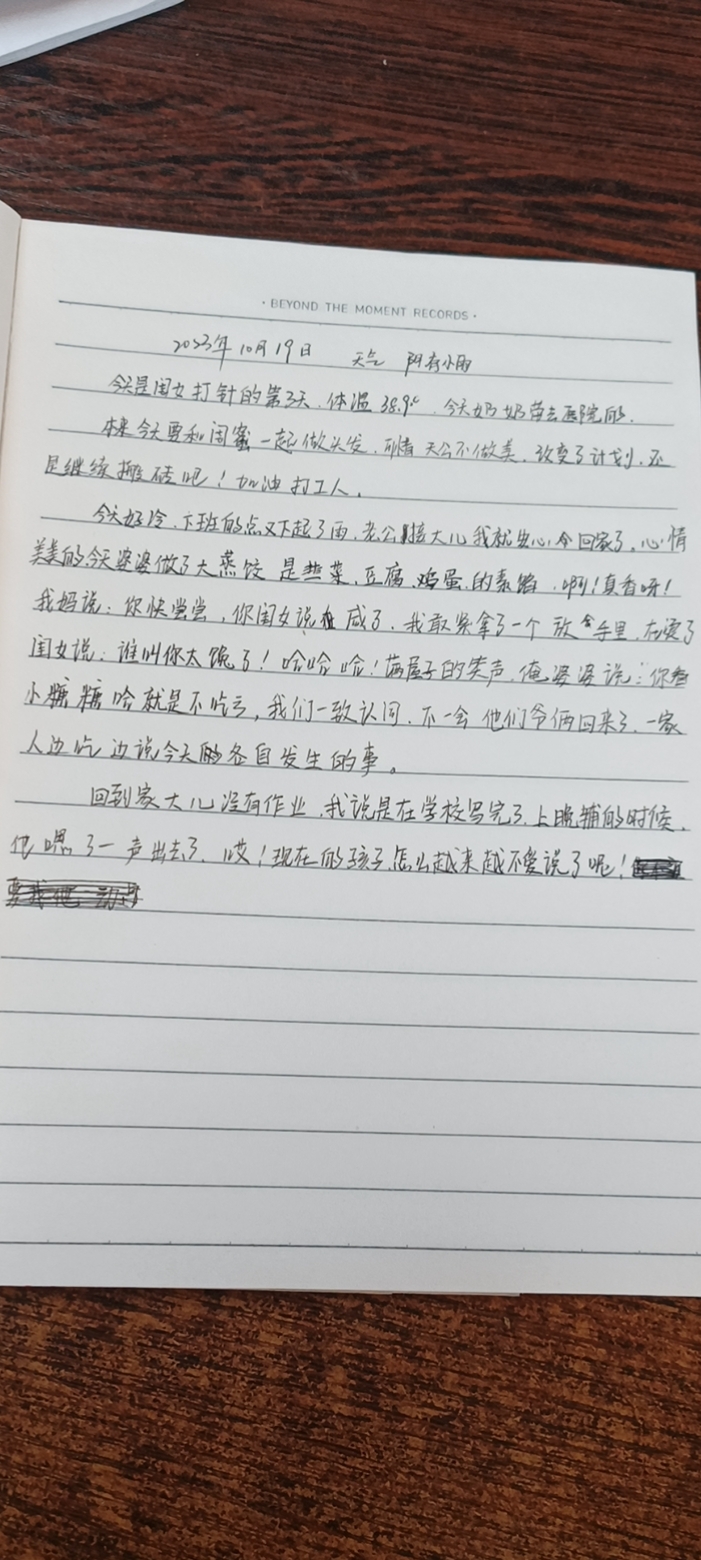 · BEYOND THE MOMENT RECORDS ·
2023年10月19日 天气 阴有小雨
今天是闺女打针的第3天.体温38.9°.今天奶奶带去医院的.
本来今天要和闺蜜一起做头发.天公不做美.改变了计划.还
是继续搬砖吧!加油打工人.
今天好冷.下班的点又下起了雨.老公接大儿我就安心回家了。心情
美美的.今天婆婆做了大蒸饺 是韭菜.豆腐.鸡蛋.的素馅.啊!真香呀!
我妈说:你快尝尝,你闺女说咸了.我敢紧拿了一个放手里.太烫了
闺女说:谁叫你太馋了!哈哈哈!满屋子的笑声.俺婆婆说:你卷
小糖糖哈就是不吃亏,我们一致认同.不一会他们爷俩回来了.一家
人边吃边说今天的各自发生的事。
回到家大儿没有作业.我说是在学校写完了.上晚辅的时候.
他嗯了一声出去了.哎!现在的孩子.怎么越来越不爱说了呢!